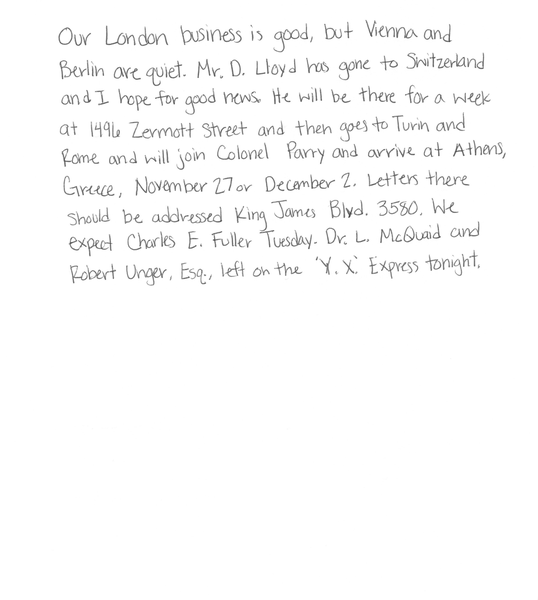 Our London business is good, but Vienna and
Berlin are quiet. Mr. D. Lloyd has gone to Switzerland
and I hope for good news. He will be there for a week
at 1496 Zermott Street and then goes to Turin and
Rome and will join Colonel Parry and arrive at Athens,
Greece, November 27 or December 2. Letters there
should be addressed King James Blvd. 3580. We
expect Charles E. Fuller Tuesday. Dr. L. McQuaid and
Robert Unger, Esq., left on the 'Y.X.' Express tonight.